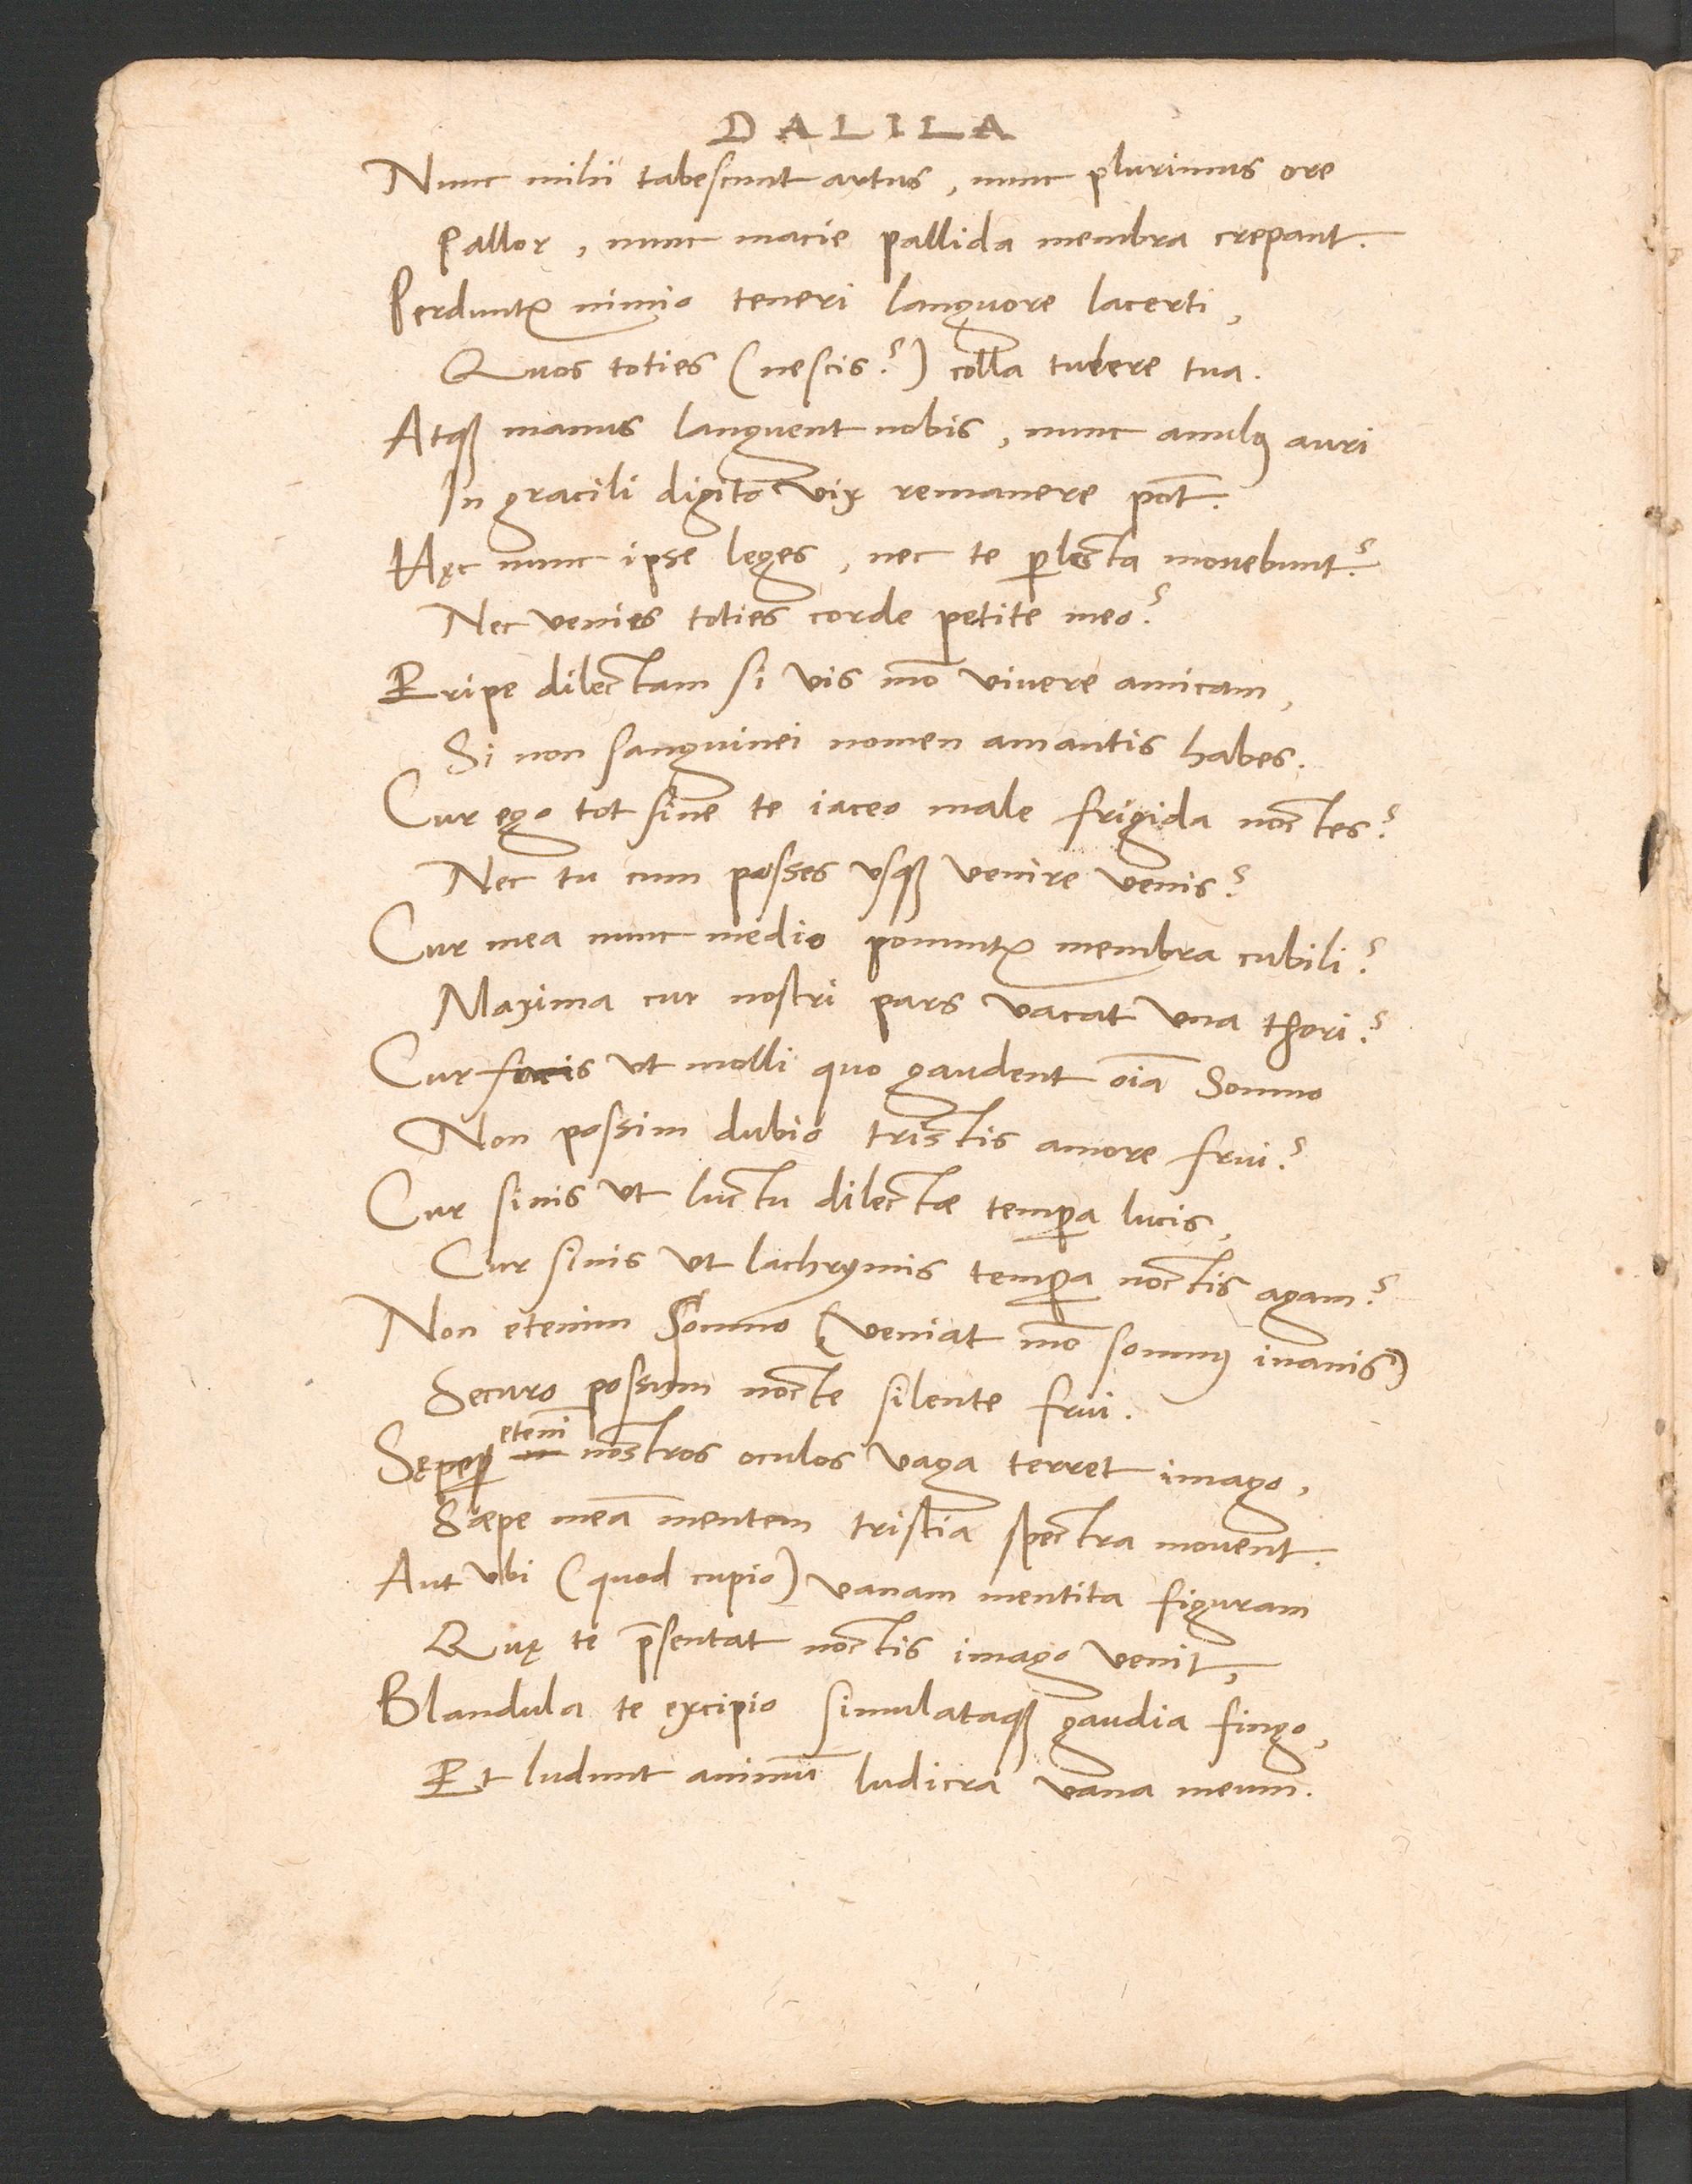 DALILA
Nunc mihi tabescunt artus, nunc plurimus ore
Pallor, nunc macie pallida membra crepant.
Perduntꝛ nimio teneri languore lacerti,
Quos toties (nescis?) colla tulere tua.
Atqꝫ manus languent nobis, nunc anulꝰ auri
In gracili digito vix remanere pot̄.
Hęc nunc ipse leges, nec te ꝑlecta mouebunt?
Nec venies toties corde petite meo?
Eripe dilectam si vis mō viuere amicam,
Si non sanguinei nomen amantis habes.
Cur ego tot sine te iaceo male frigida noctes?
Nec tu cum posses vsqꝫ venire venis?
Cur mea nunc medio ponuntꝛ membra cubili?
Maxima cur nostri pars vacat vna thori?
Cur facis vt molli quo gaudent oīa Somno
Non possim dubio tristis amore frui?
Cur sinis vt luctu dilectæ temꝑa lucis,
Cur sinis vt lachrymis temꝑa noctis agam?
Non etenim Somno (veniat mō somnꝰ inanis)
Securo possum nocte silente frui.
Sępe etenī nostros oculos vaga terret imago,
Sæpe meā mentem tristia spectra mouent.
Aut vbi (quod cupio) vanam mentita figuram
Quę te p̄sentat noctis imago venit,
Blandula te excipio simulataqꝫ gaudia fingo,
Et ludunt animū ludicra vana meum.